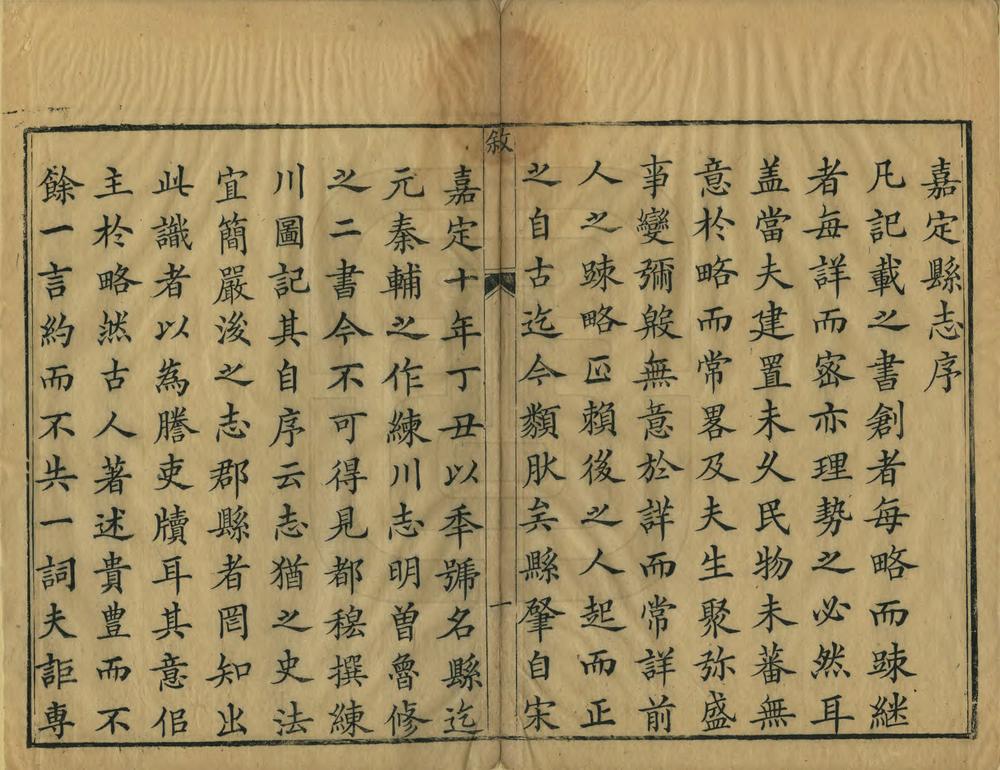 嘉定縣志序
凡記載之書創者每略而踈継
者每詳而宻亦理勢之必然耳
盖當夫建置未乆民物未蕃無
意於略而常畧及夫生聚弥盛
事變彌殷無意於詳而常詳前
人之踈略正賴後之人起而正
之自古迄今類肰矣縣肇自宋
敘
一
嘉定十年丁丑以秊號名縣迄
元秦輔之作練川志明曽魯修
之二書今不可得見都穆撰練
川圖記其自序云志猶之史法
宜簡嚴後之志郡縣者罔知出
此識者以為謄吏牘耳其意佀
主於略然古人著述貴豊而不
餘一言約而不失一詞夫詎専